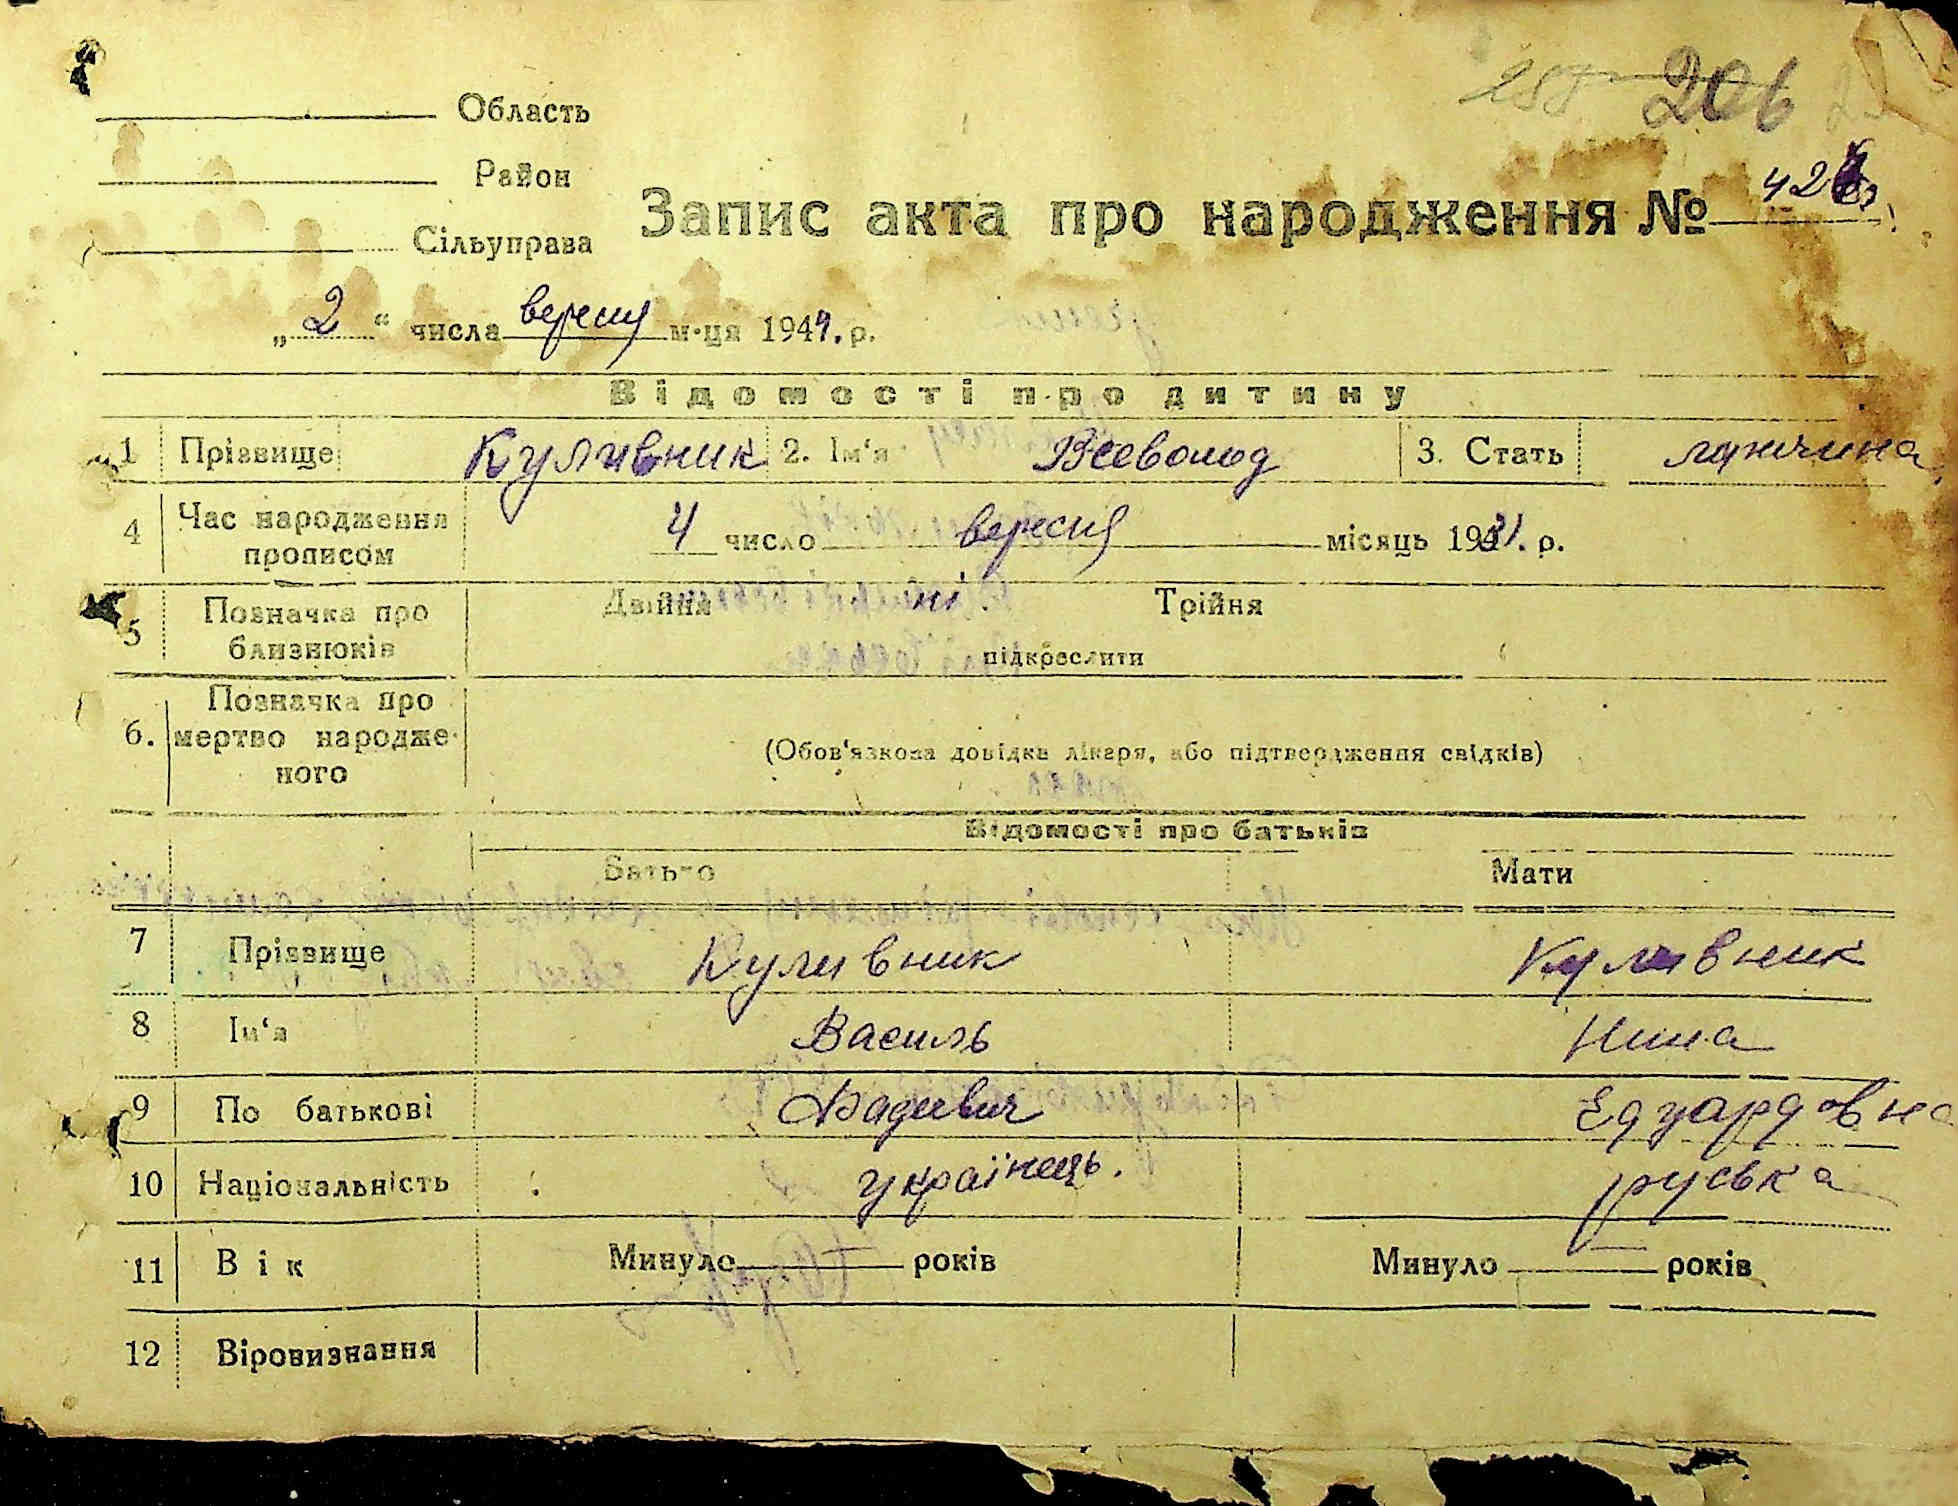 206
Область
Район
Сільуправа
Запис акта про народження №
„2“ числа вересня м-ця 1944. р.
Відомості про дитину
1 Прізвище Куливник 2. Ім‘я Всеволод 3. Стать
4 Час народження прописом 4 число вересня місяць 19 р.
5 Позначка про близнюків Двійня ні. Трійня
підкреслити
6. Позначка про мертво народже-
ного
(Обов‘язкова довідка лікаря, або підтвердження свідків)
Відомості про батьків
Батько Мати
7 Прізвище Куливник Куливник
8 Ім‘я Василь Нина
9 По батькові Едуардовна
10 Національність українець. руська
11 Вік Минуло років Минуло років
12 Віровизнання